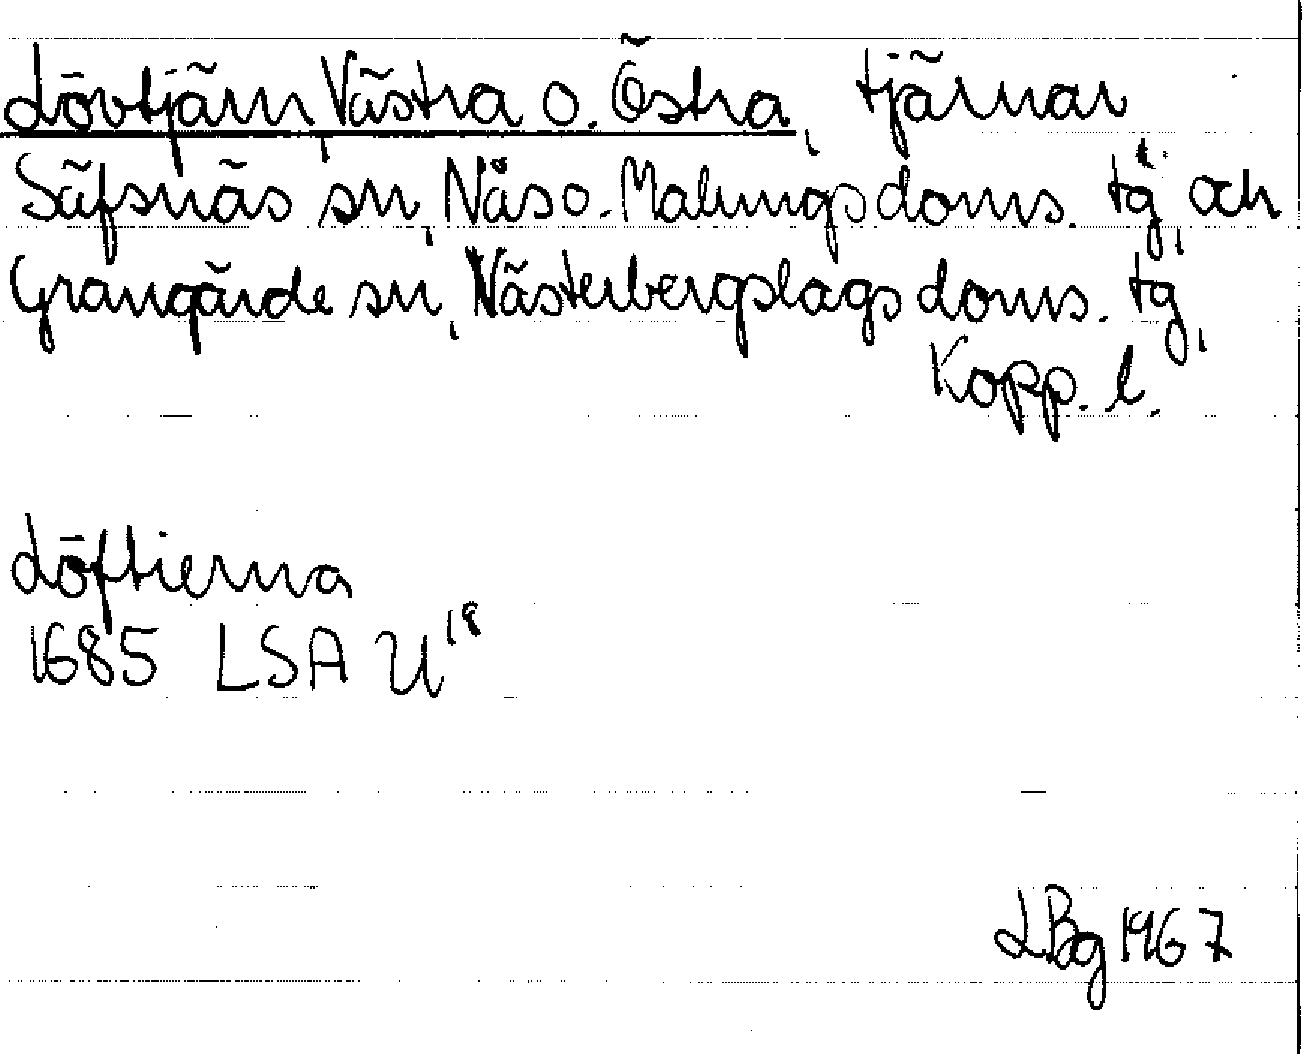 Lövtjärn, Västra o. Östra, tjärnar
Säfsnäs sn, Nås o. Malungs doms. tg, och
Grangärde sn, Västerbergslags doms. tg,
Kopp. l.
Löftierna
1685 LSA U18
LBg 1967